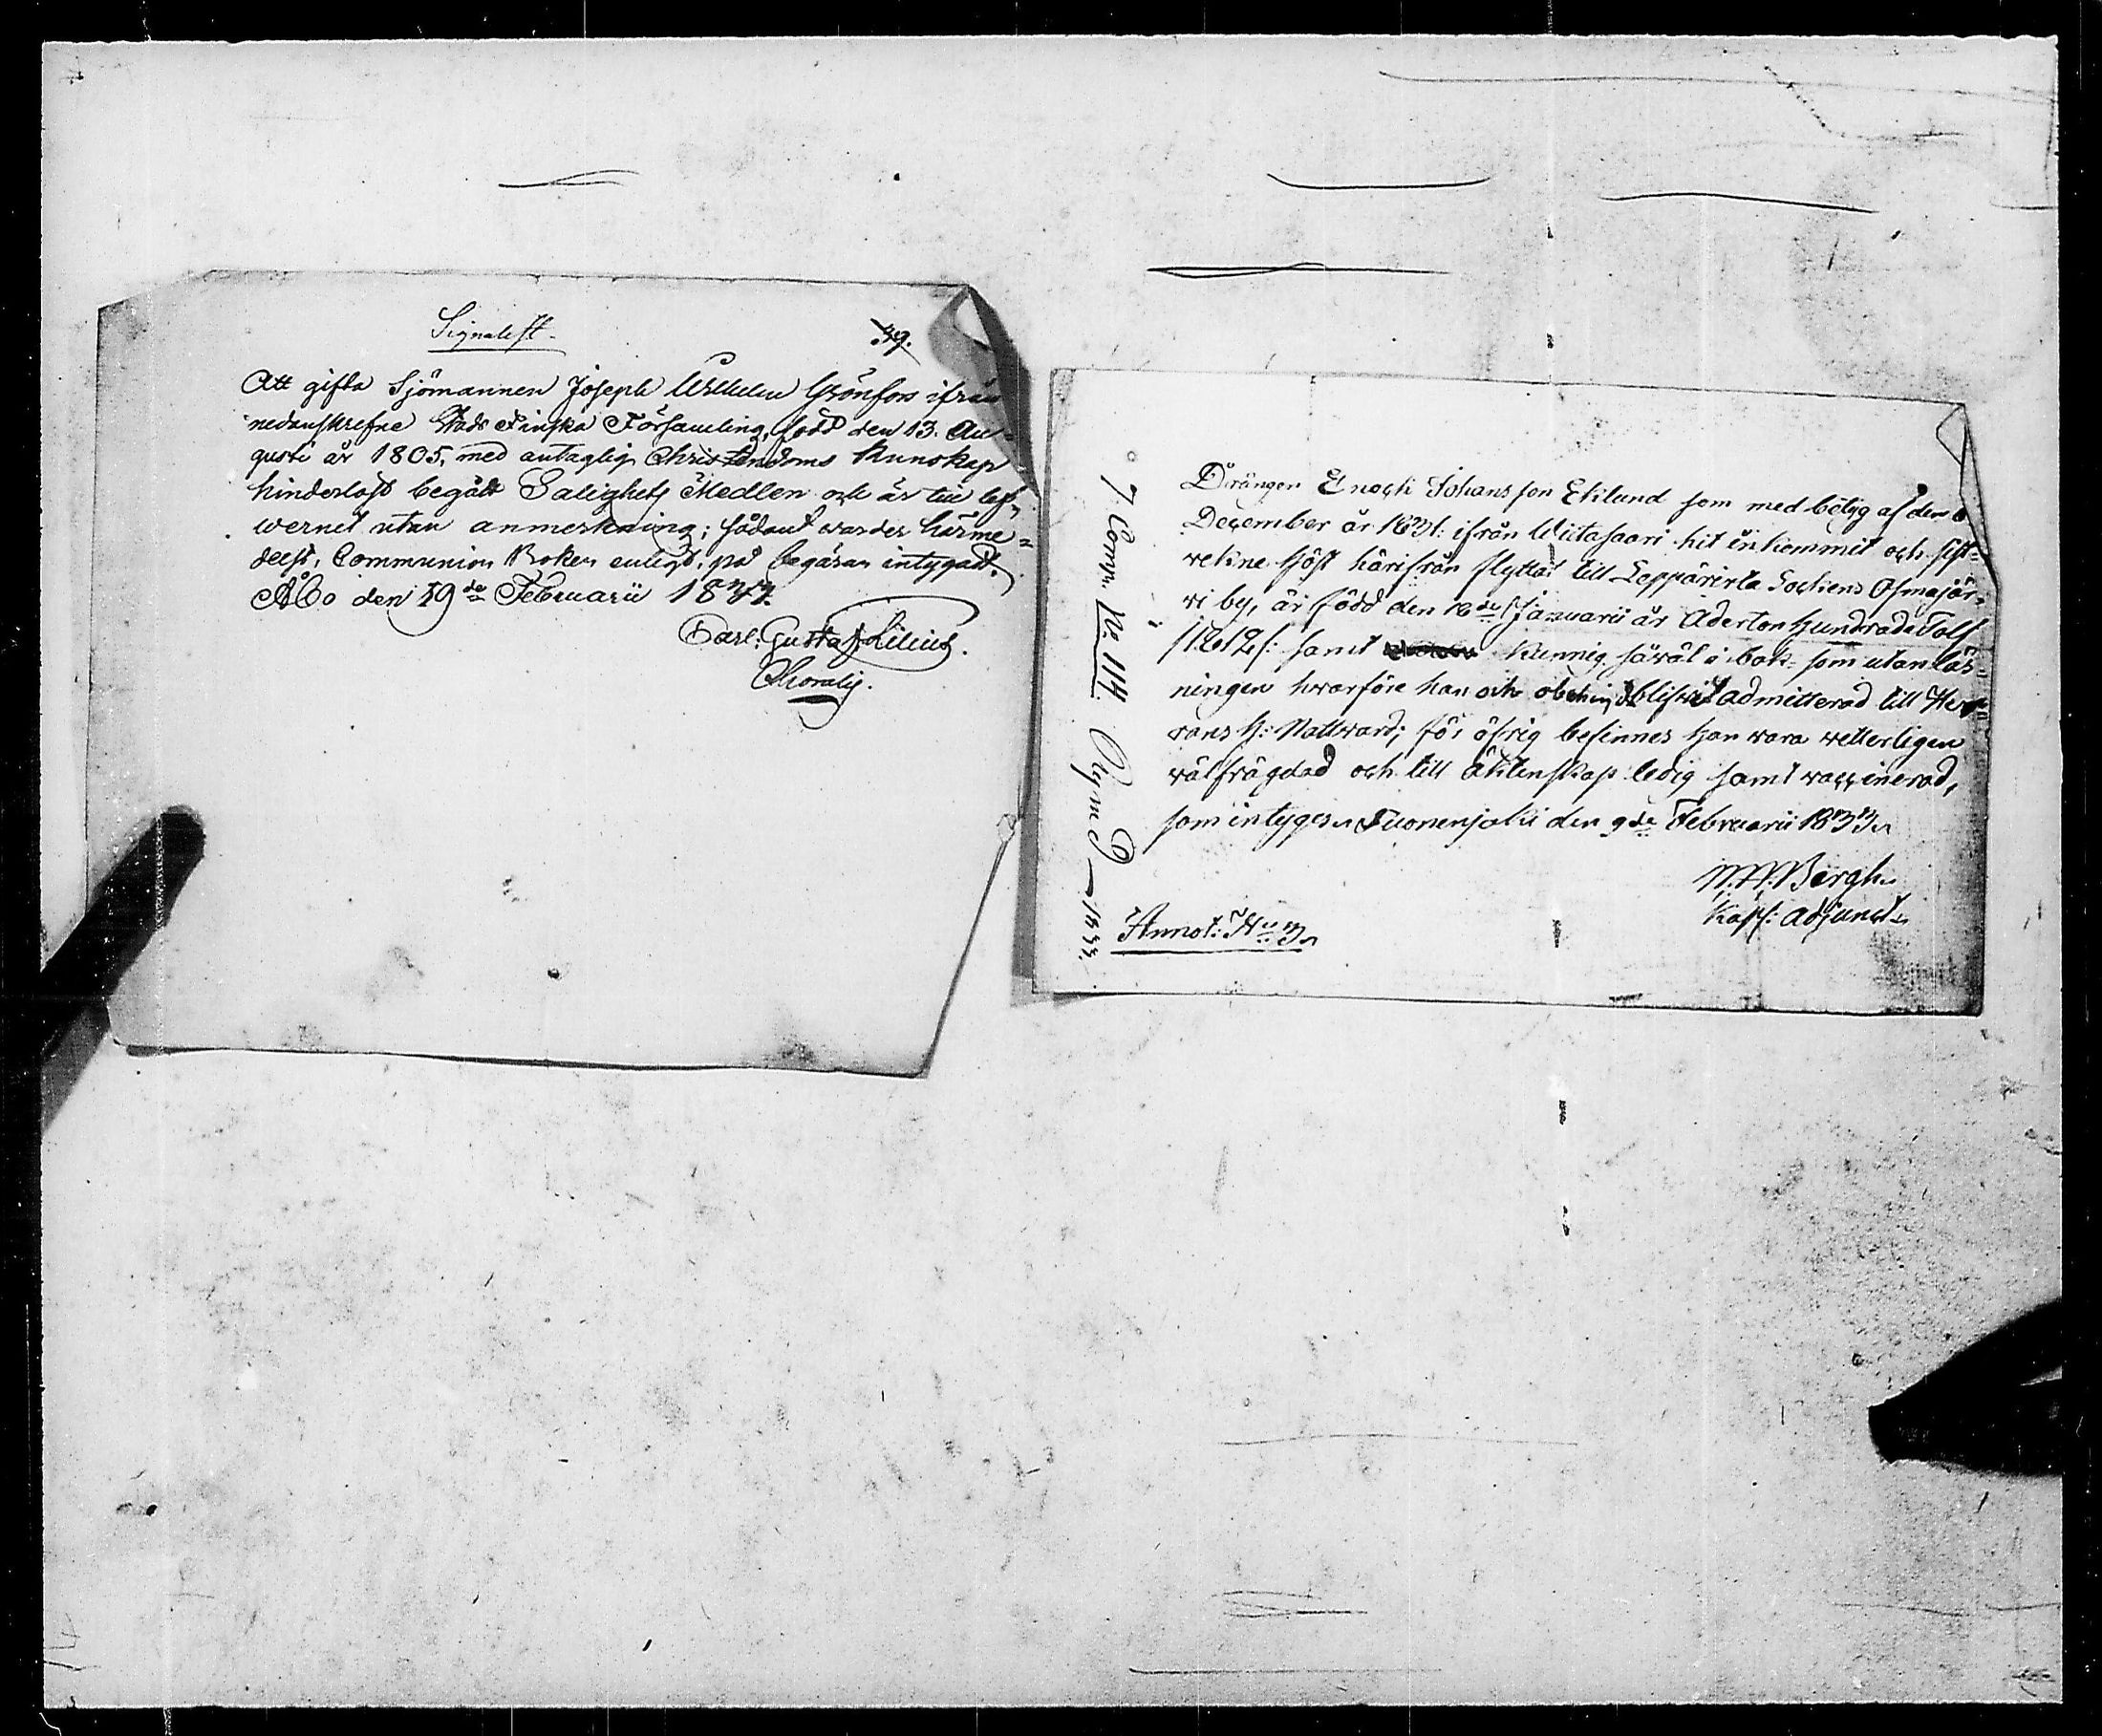 Signalist.
39.
Att gifta Sjömannen Joseph Wilhelm Grönfors ifrån
nedanskrefne Stads Finska Församling, född den 13. Au-
gusti år 1805, med antaglig Christendoms Kunskap
hinderlöst begått Salighets Medlen och är till lef-
wernet utan anmerkning; sådant warder härme-
delst, Communion Boken enligt, på begäran intygadt.
Åbo den 19de Februarii 1833.
Carl Gustaf Lilius.
Choralis.
7. Comp. No. 114. 1833.
Drängen Enoch Johansson Eklund som med betyg af den 6
December år 1831: ifrån Wiitasaari hit inkommit och sist-
vekne höst härifrån flyttat till Leppävirta Sockens Osmajär-
wi by, är född den 16de Januarii år Aderton Hundrade Tolf
/:1812/: samt kunnig såwäl i bok- som utan läs-
ningen hwarföre han och obehindr blifwit admitterad till Her-
rans H: Nattward; för öfrig befinnes han wara wetterligen
wälfrägdad och till äktenskap ledig samt waccinerad,
som intygas Suonenjoki den 9de Februarii 1833.
Bergh.
Kapl: Adjunct.
Annot: No 3.